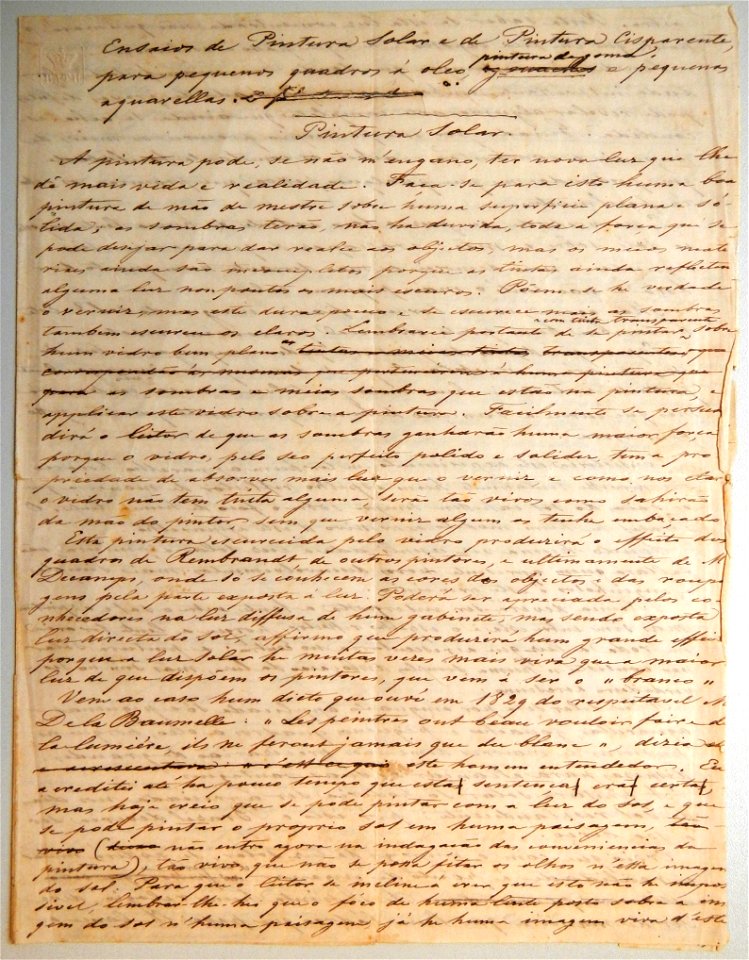 Ensaios de Pintura Solar e de Pintura Cisparente,
pintura de goma
para pequenos quadros á oleo, e pequenas
aquarellas.
Pintura Solar.
A pintura pode, se não m'engano, ter nova luz que lhe
dê mais vida e realidade. Faça-se para isto huma boa
pintura de mão de mestre sobre huma superficie plana e só-
lida; as sombras terão, não ha duvida, toda a força que se
pode desejar para dar realce aos objectos, mas os meios mate
riaes ainda são incompletos porque as tintas ainda reflectem
alguma luz nos pontos os mais escuros. Põem-se he verdade
o verniz, mas este dura pouco e se escurece mais as sombras
também escurece os claros. Lembrarei portanto de se pintar sobre
com tinta transparente
hum vidro bem plano tintas e meias tintas transparentes que
as sombras e meias sombras que estão na pintura, e
applicar este vidro sobre a pintura. Facilmente se persua
dirá o leitor de que as sombras ganharão huma maior força
porque o vidro, pelo seo perfeito polido e solidez, tem a pro
priedade de absorver mais luz que o verniz, e como nos claros
o vidro não tem tinta alguma, serão tão vivos como sahirão
da mão do pintor, sem que verniz algum os tenha embaçado
Esta pintura escurecida pelo vidro produzirá o effeito dos
quadros de Rembrandt de outros pintores, e ultimamente de M
Decamps, onde só se conhecem as cores dos objectos e das roupa
gens pela parte exposta á luz. Poderá ser apreciada pelos co
nhecedores na luz diffusa de hum gabinete, mas sendo exposta
luz directa do sol, affirmo que produzirá hum grande effeito
porque a luz solar he muitas vezes mais viva que a maior
luz de que dispõem os pintores, que vem a ser o "branco"
Vem ao caso hum dicto que ouvi em 1829 do respeitavel M
De la Baumelle: "Les peintres ont beau vouloir faire d
la lumiére, ils ne feront jamais que du blanc", dizia
este homem entendedor. Eu
acreditei até ha pouco tempo que esta sentença era certa,
mas hoje creio que se pode pintar com a luz do sol, e que
se pode pintar o proprio sol em huma paisagem, tão
vivo (não entro agora na indagação das conveniencias da
pintura), tão vivo que não se possa fitar os olhos n'esta imagem
do sol. Para que o leitor se incline á crer que isto não he impos
sivel, lembrar-lhe-hei que o foco de huma lente posto sobre a ima
gem do sol n'huma paisagem já he huma imagem viva d'este